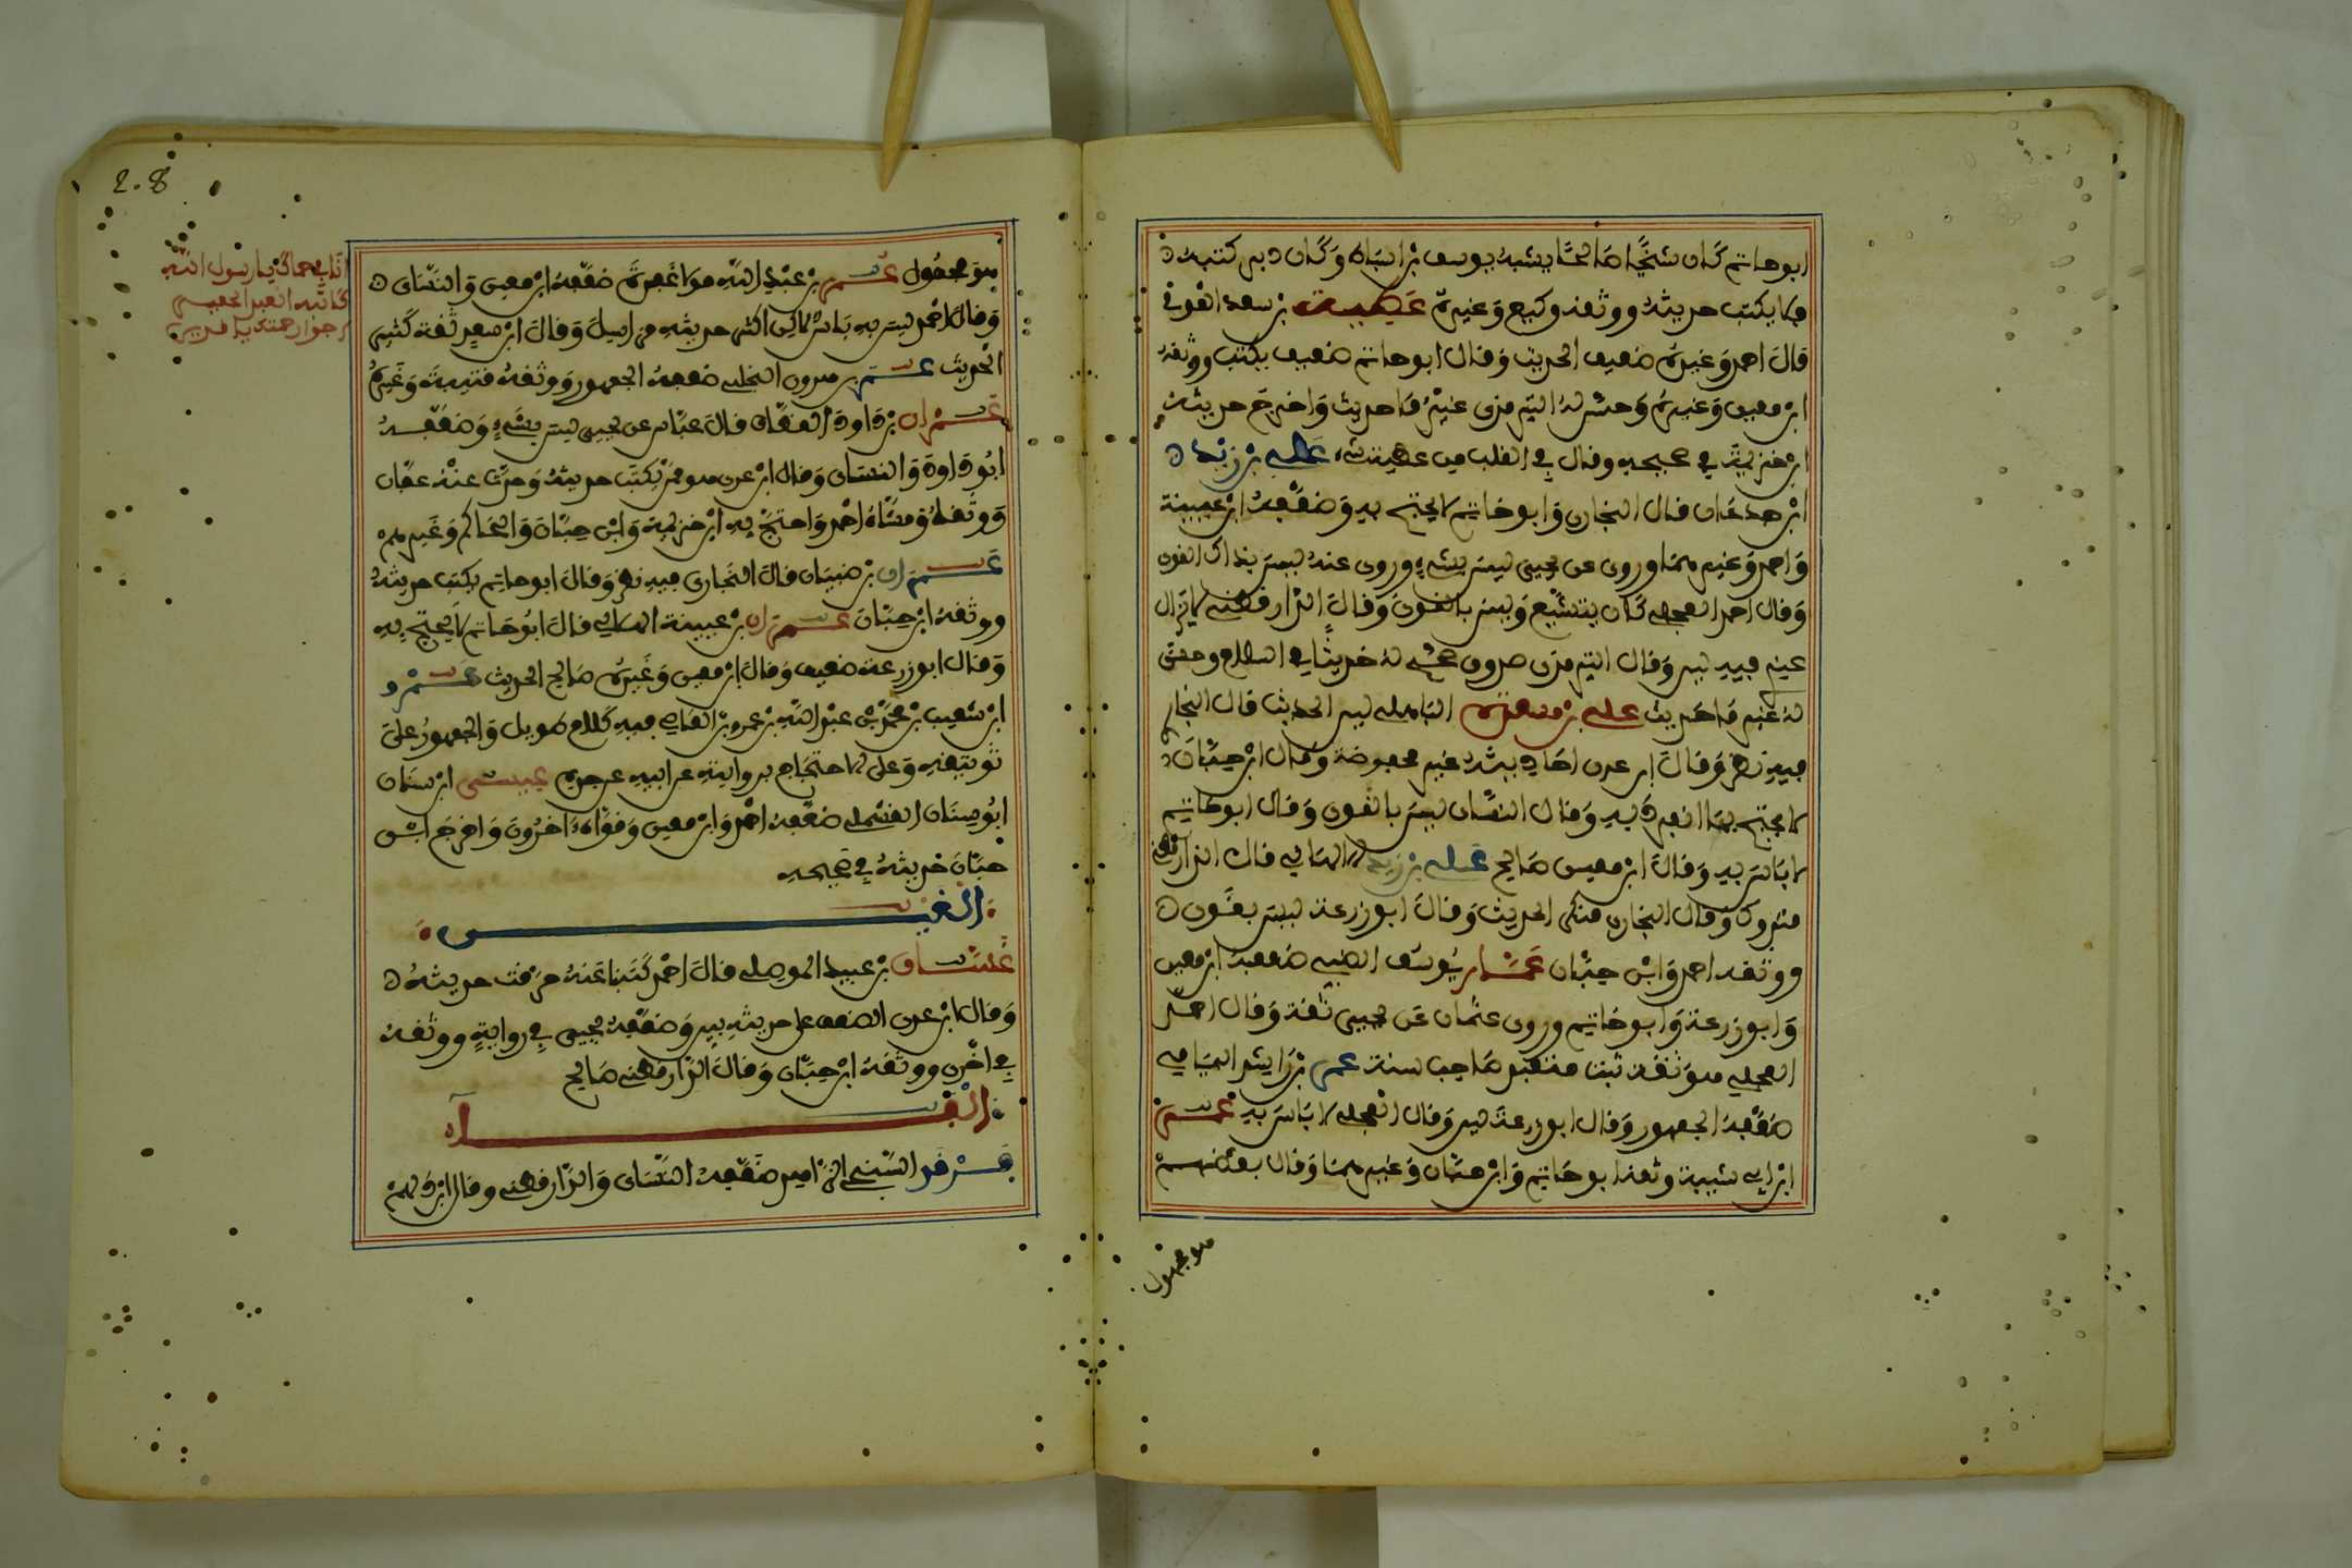 ابو حاتم كان شيخا صالحا يشبه يوسف بن اسباط وكان دفن كتبه
فلا يكتب حديثه ووثقه وكيع وغيره عطية بن سعد العوفي
قال احمد وغيره ضعيف الحديث وقال ابو حاتم ضعيف يكتب ووثقه
ابن معين وغيره وحسن له الترمذي غير ما حديث واخرج حديثه
ابن خزيمة في صحيحه وقال في القلب من عطية شيء علي بن زيد
ابن جدعان قال البخاري وابو حاتم لا يحتج به وضعفه ابن عيينة
واحمد وغيرهما وروي عن يحيى ليس بشيء وروي عنه ليس بذاك القوي
وقال احمد العجلي كان يتشيع وليس بالقوي وقال الدارقطني لا يزال
عندي فيه لين وقال الترمذي صدوق وصحح له حديثا في السلام وحسن
له غير ما حديث علي بن مسعدة الباهلي لين الحديث قال البخاري
فيه نظر وقال ابن عدي احاديثه غير محفوظة وقال ابن حبان
لا يحتج بما انفرد به وقال النسائي ليس بالقوي وقال ابو حاتم
لا باس به وقال ابن معين صالح علي بن يزيد الالهاني قال الدارقطني
متروك وقال البخاري منكر الحديث وقال ابو زرعة ليس بقوي
ووثقه احمد وابن حبان عمار بن يوسف الضبي ضعفه ابن معين
وابو زرعة وابو حاتم وروى عثمان عن يحيى ثقة وقال احمد
العجلي هو ثقة ثبت متعبد صاحب سنة عمر بن راشد اليمامي
ضعفه الجمهور وقال ابو زرعة لين وقال العجلي لا باس به عمر
ابن ابي شيبة وثقه ابو حاتم وابن حبان وغيرهما وقال بعضهم
هو مجهول
2.8
انا في حماك يا رسول الله
كاتبه العبد الحقير
ارجو ارحمتك يا قريب
هو مجهول عمر بن عبد الله مولى غفرة ضعفه ابن معين والنسائي
وقال احمد ليس به باس لكن اكثر حديثه مراسيل وقال ابن سعد ثقة كثير
الحديث عمر بن هرون البلخي ضعفه الجمهور ووثقه قتيبة وغيره
عمران بن داود القطان قال عباس عن يحيى ليس بشيء وضعفه
ابو داود والنسائي وقال ابن عدي هو ممن يكتب حديثه وحدث عنه عفان
ووثقه ومشاه احمد واحتج به ابن خزيمة وابن حبان والحاكم وغيرهم
عمران بن ظبيان قال البخاري فيه نظر وقال ابو حاتم يكتب حديثه
ووثقه ابن حبان عمران بن عيينة الهلالي قال ابو حاتم لا يحتج به
وقال ابو زرعة ضعيف وقال ابن معين وغيره صالح الحديث عمرو
ابن شعيب بن محمد بن عبد الله بن عمرو بن العاصي فيه كلام طويل والجمهور على
توثيقه وعلى الاحتجاج بروايته عن ابيه عن جده عيسى ابن سنان
ابو سنان القسملي ضعفه احمد وابن معين وقواه اخرون واخرج ابن
حبان حديثه في صحيحه
الغين
غسان بن عبيد الموصلي قال احمد كتبنا عنه خرقت حديثه
وقال ابن عدي الضعف على حديثه بين وضعفه يحيى في رواية ووثقه
في اخرى ووثقه ابن حبان وقال الدارقطني صالح
الفاء
فرقد السبخي الزاهد ضعفه النسائي والدارقطني وقال